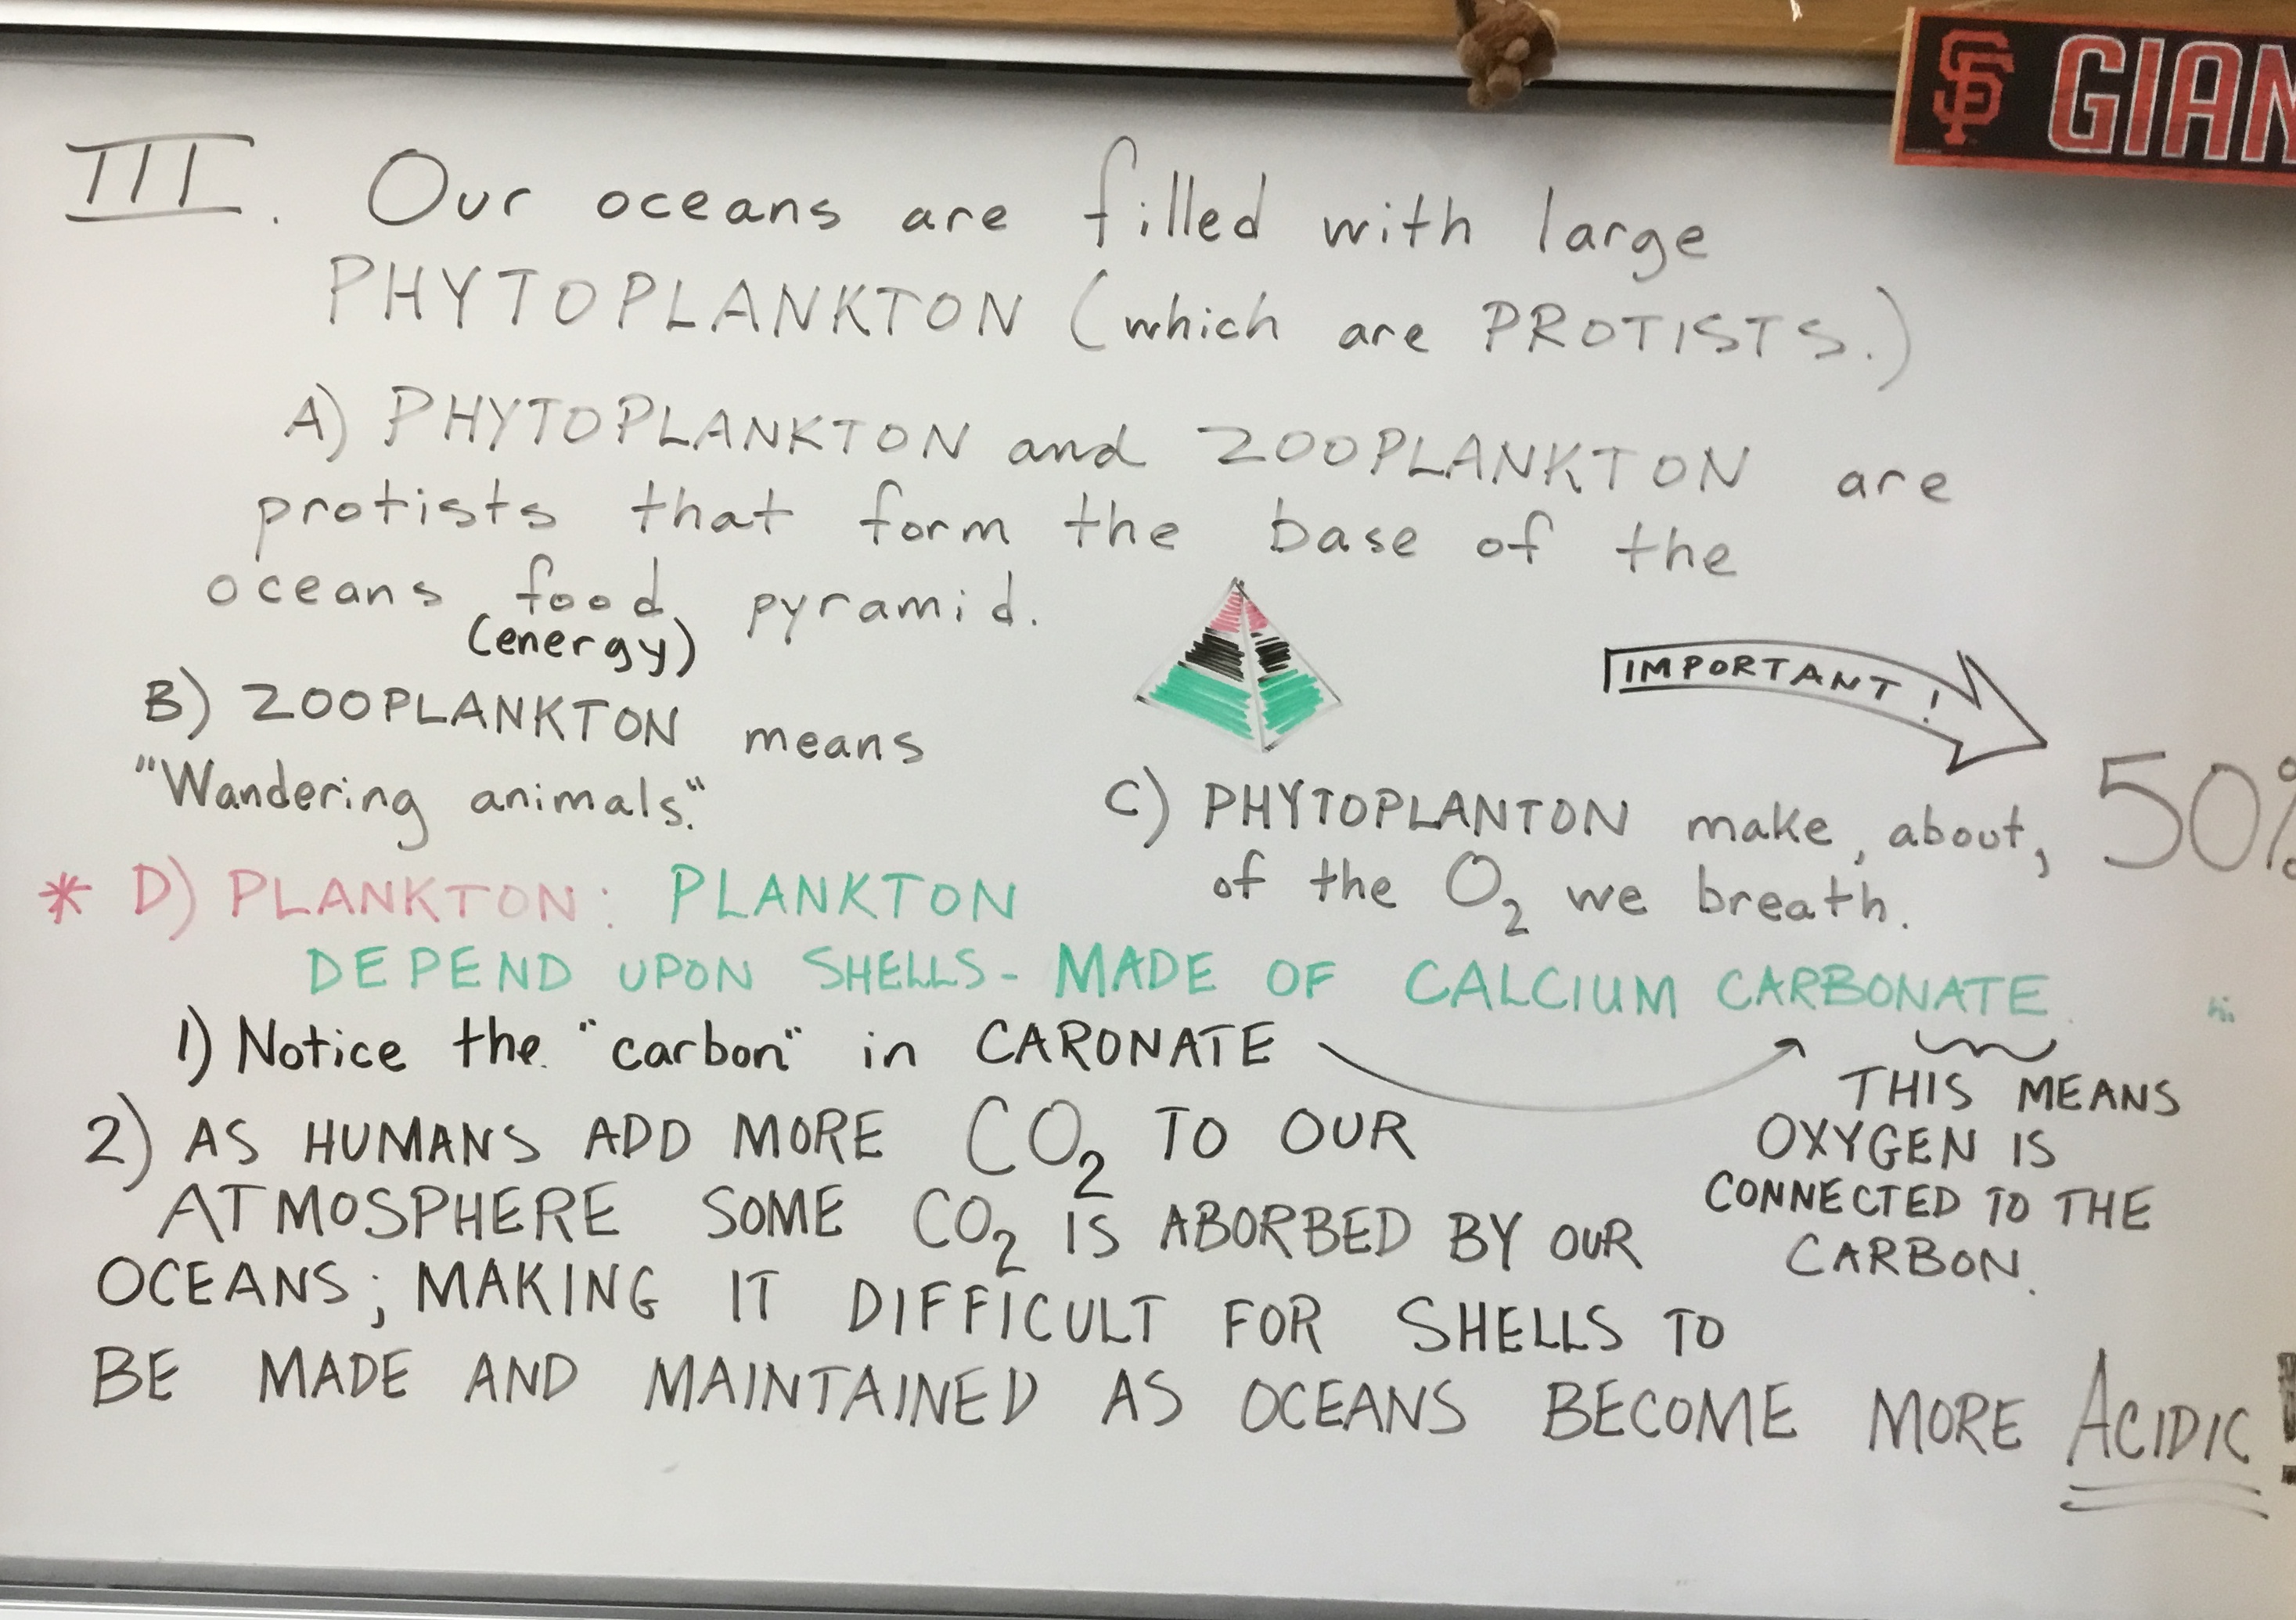 SF GIAN
III. Our oceans are filled with large
PHYTOPLANKTON (which are PROTISTS.)
A) PHYTOPLANKTON and ZOOPLANKTON are
protists that form the base of the
oceans food pyramid.
(energy)
B) ZOOPLANKTON means
"Wandering animals."
IMPORTANT!
C) PHYTOPLANTON make, about, 50%
of the O₂ we breath.
* D) PLANKTON: PLANKTON
DEPEND UPON SHELLS - MADE OF CALCIUM CARBONATE.
hi
1) Notice the "carbon" in CARONATE
THIS MEANS
OXYGEN IS
CONNECTED TO THE
CARBON.
2) AS HUMANS ADD MORE CO₂ TO OUR
ATMOSPHERE SOME CO₂ IS ABORBED BY OUR
OCEANS; MAKING IT DIFFICULT FOR SHELLS TO
BE MADE AND MAINTAINED AS OCEANS BECOME MORE ACIDIC!